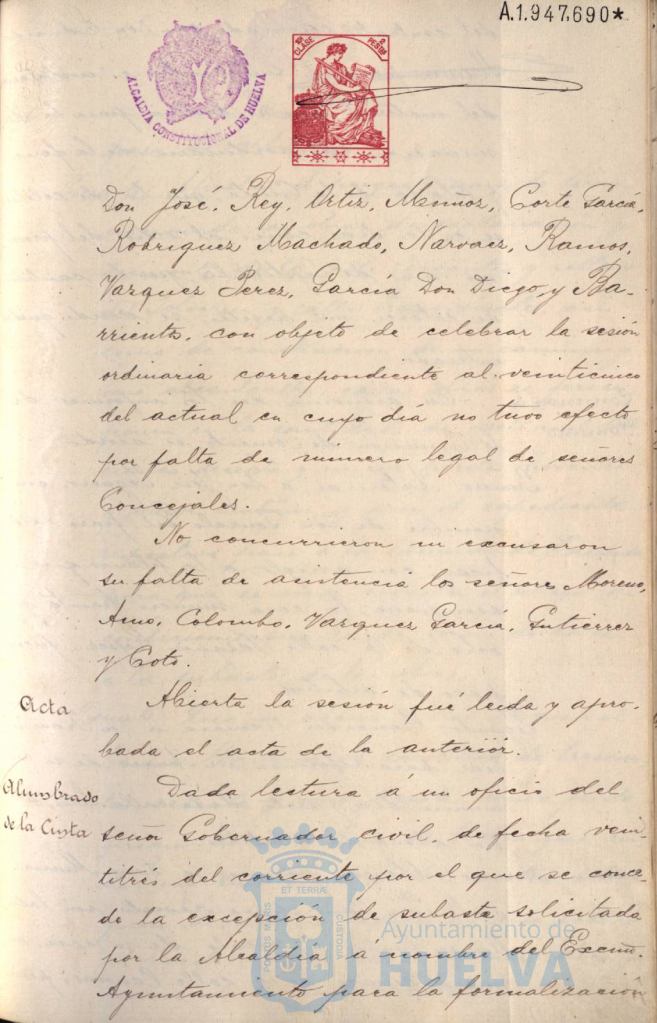 A.1.947.690*
ALCALDIA CONSTITUCIONAL DE HUELVA
10ª CLASE 2 PESTAS
Don José, Rey, Ortiz, Muñoz, Corte García,
Rodriguez Machado, Narvaez, Ramos,
Vazquez Perez, García Don Diego, y Ba-
rrientos, con objeto de celebrar la sesión
ordinaria correspondiente al veinticinco
del actual en cuyo día no tuvo efecto
por falta de número legal de señores
Concejales.
No concurrieron ni excusaron
su falta de asistencia los señores Moreno,
Amo, Colombo, Vazquez García, Gutierrez
y Coto.
Acta
Abierta la sesión fué leida y apro-
bada el acta de la anterior.
Alumbrado
de la Cinta
Dada lectura á un oficio del
señor Gobernador civil, de fecha vein-
titrés del corriente por el que se conce-
de la excepción de subasta solicitada
por la Alcaldía á nombre del Excmo.
Ayuntamiento para la formalización
PORTUS MARIS ET TERRÆ CUSTODIA
Ayuntamiento de
HUELVA